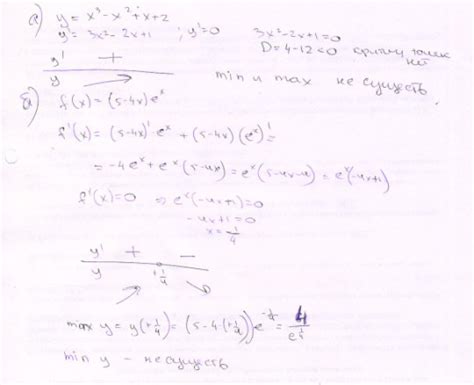 а) y = x³ - x² + x + 2
y' = 3x² - 2x + 1 ; y' = 0 3x² - 2x + 1 = 0
D = 4 - 12 < 0 критич точек нет
y' +
y min и max не существ.
б) f(x) = (5 - 4x) eˣ
f'(x) = (5 - 4x)' · eˣ + (5 - 4x)(eˣ)' =
= -4eˣ + eˣ(5 - 4x) = eˣ(5 - 4x - 4) = eˣ(-4x + 1)
f'(x) = 0 ⇒ eˣ(-4x + 1) = 0
-4x + 1 = 0
x = 1/4
y' + -
y +1/4
max y = y(+1/4) = (5 - 4·(+1/4)) e^(1/4) = 4/e^(1/4)
min y - не существ